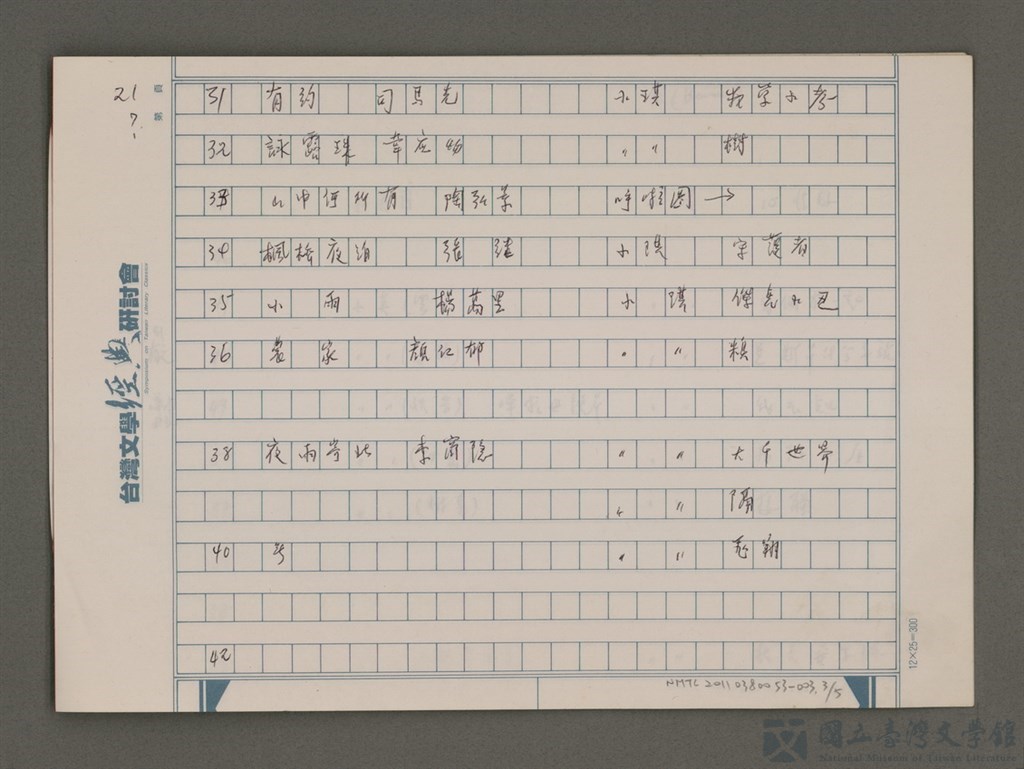 21
?
頁 第
31 有約 司馬光 小琪 牧草小彥
32 詠露珠 韋应物 〃 〃 樹
33 山中何所有 陶弘景 呼啦圈 →
34 楓橋夜泊 張继 小琪 守護者
35 小雨 楊萬里 小琪
36 農家 顏仁郁 〃 〃 賴
38 夜雨寄北 李商隐 〃 〃 大千世界
〃 〃 隔
40 〃 〃 飛翔
42
台灣文學經典研討會
Symposium on Taiwan Literary Classics
12×25=300
NMTL 20110380053-003, 3/5
國立臺灣文學館
National Museum of Taiwan Literature